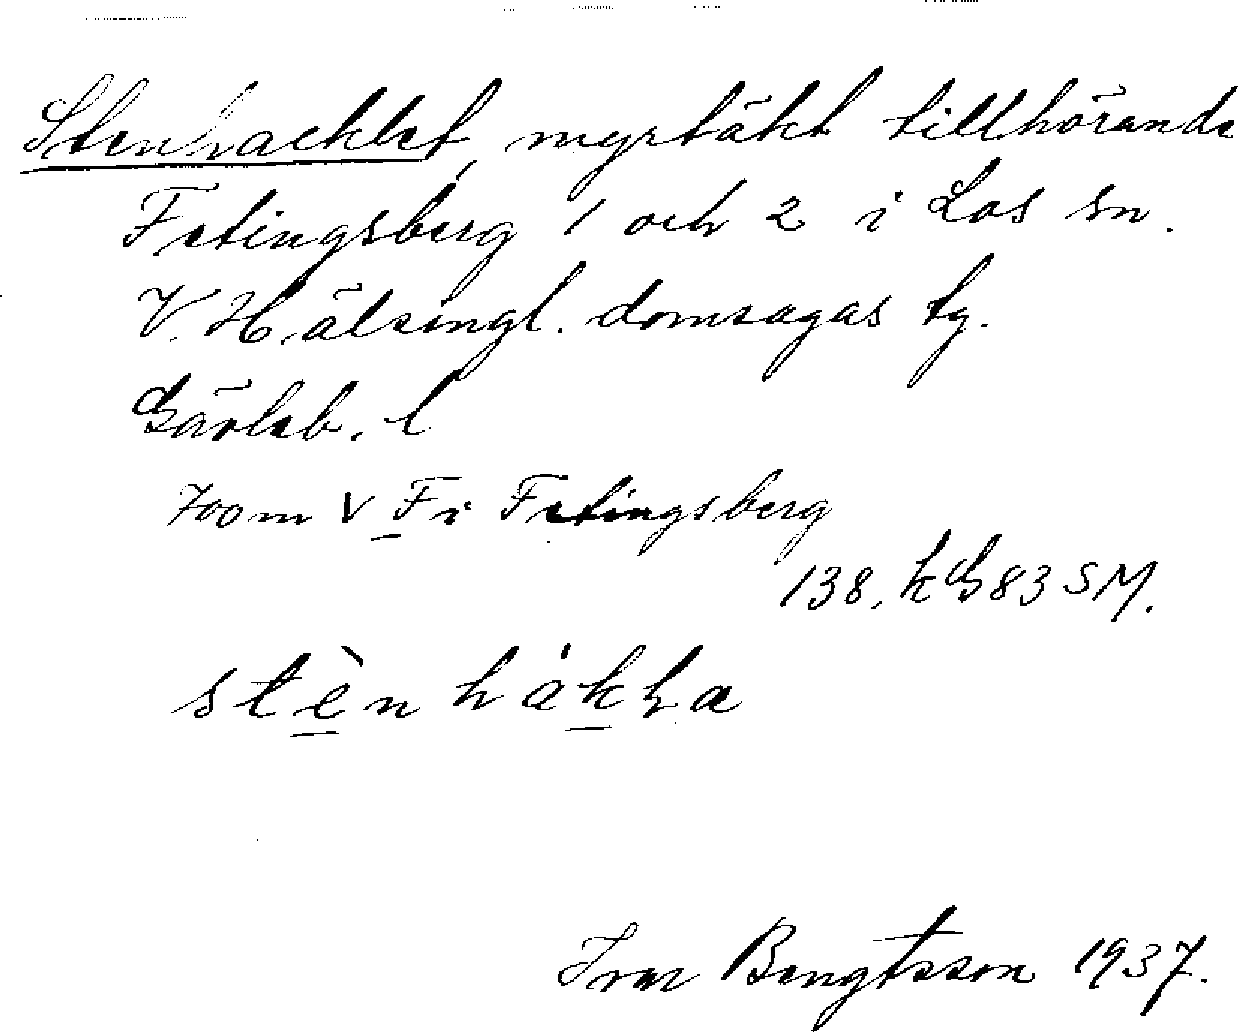 Stenhacklet, myrtäkt tillhörande
Fetingsberg 1 och 2 i Los sn.
V. Hälsingl. domsagas tg.
Gävleb. l
700 m V Fr Fetingsberg
138, k G 83 SM.
stèn hákļa
Ivar Bengtsson 1937.